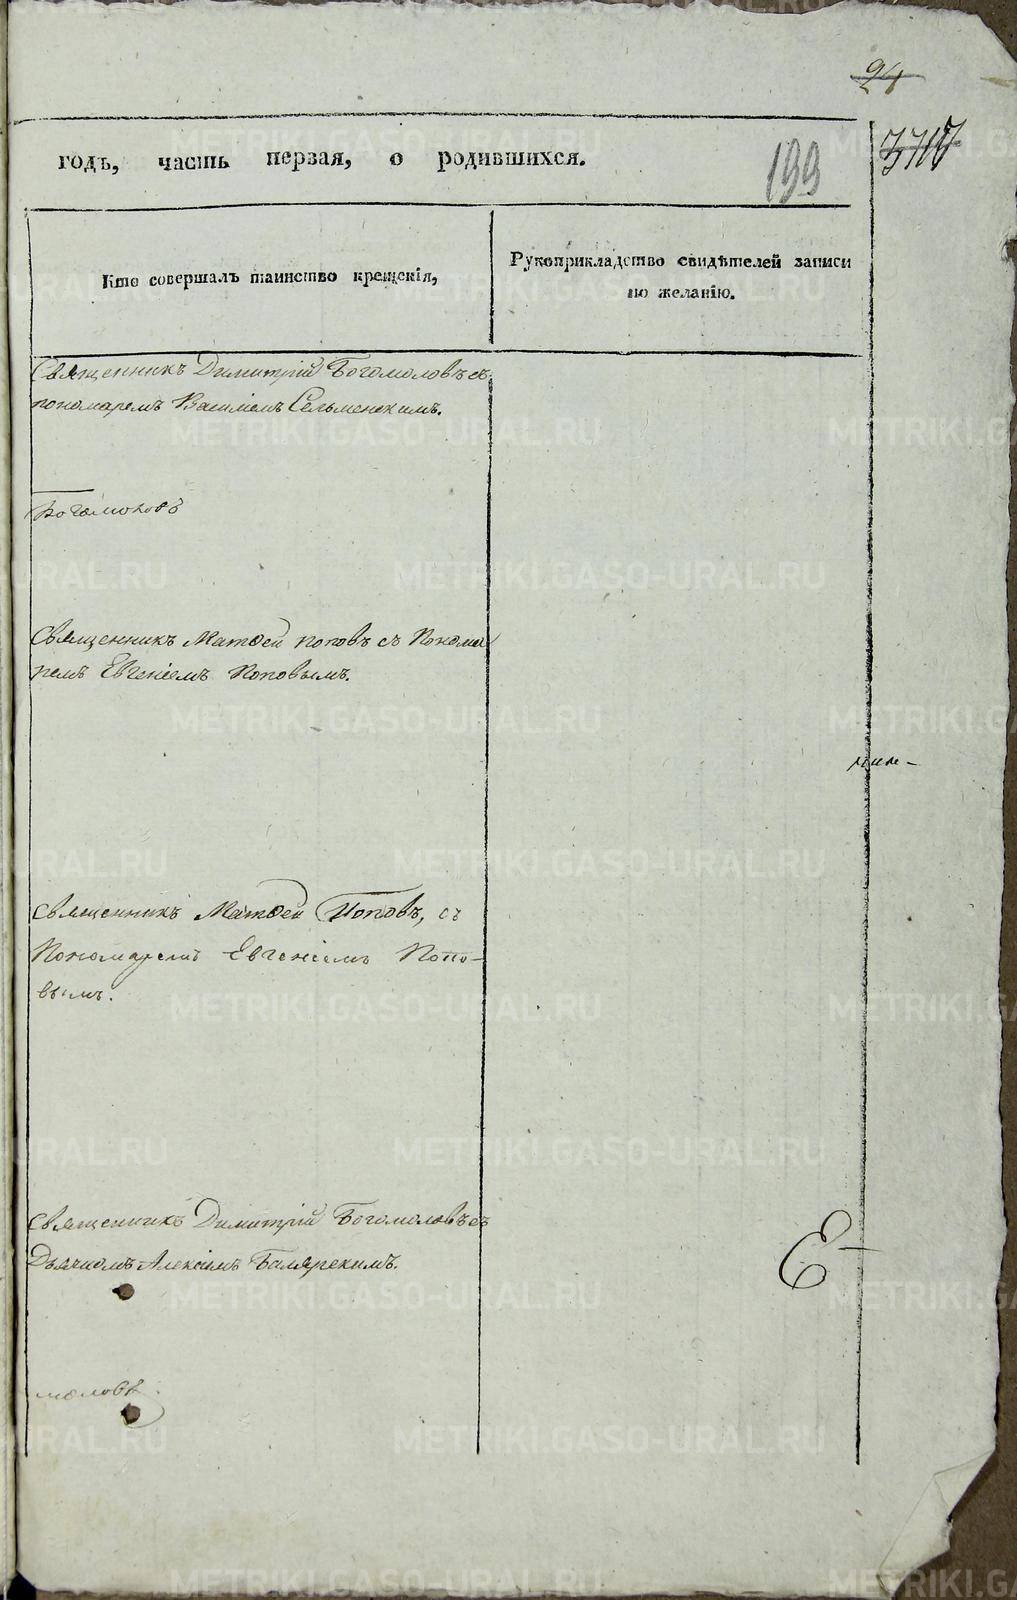 24
годъ, часть первая, о родившихся.
199
Кто совершалъ таинство крещенія,
Рукоприкладство свидѣтелей записи
по желанію.
Священникъ Димитрій Богомоловъ съ
пономаремъ Василіемъ Сельменскимъ.
Богомоловъ
Священникъ Матѳей Поповъ съ Понома
ремъ Евгеніемъ Поповымъ.
Священникъ Матѳей Поповъ, съ
Пономаремъ Евгеніемъ Попо-
вымъ.
Священникъ Димитрій Богомоловъ съ
Дьячкомъ Алексіемъ
моловъ
METRIKI.GASO-URAL.RU